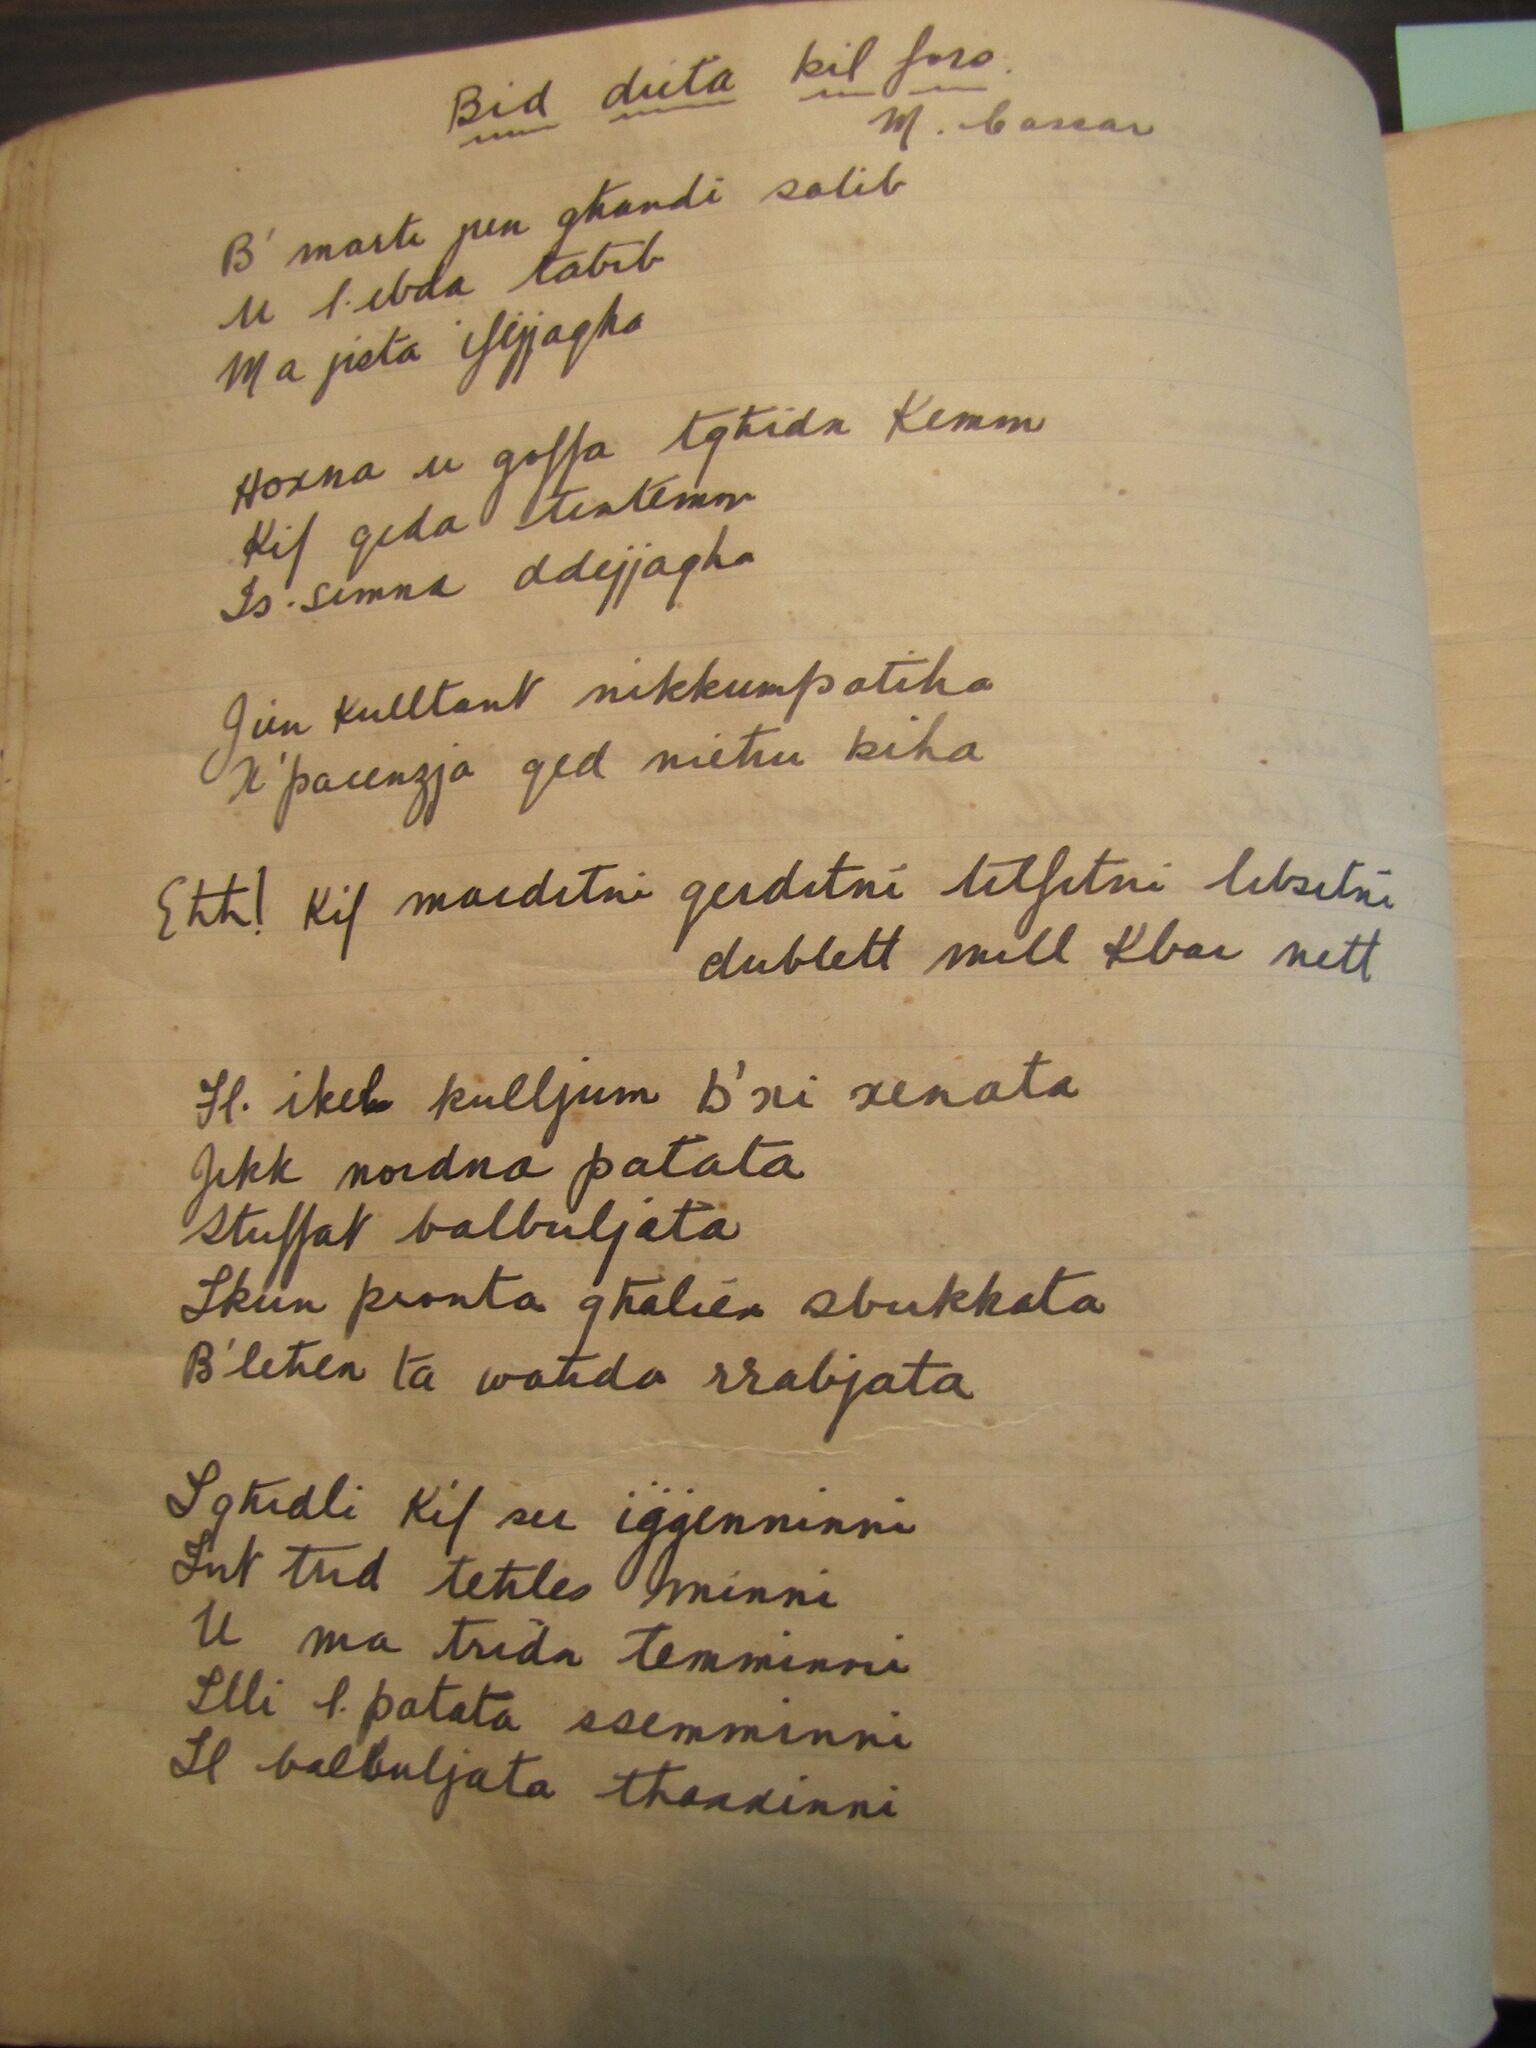 Bid dieta kil fors.
M. Cassar
B' marti jien għandi salib
U l. ebda tabib
Ma jista ifejjagħa
Hoxna u goffa tgħidx Kemm
Kif geda tintemm
Is. simna ddejjagħa
Jien Kulltant nikkumpatiha
X'pacenzja ged nieħu biha
Eħħ! Kif marditni gerditni tilfitni libsitni
dublett mill Kbar nett
Il. ikel kulljum b'xi xenata
Jekk nordna patata
Stuffat balbuljata
Ikun pronta għalien sbukkata
B'leħen ta waħda rrabjata
Igħidli Kif se iġġenninni
Int trid teħles minni
U ma tridx temminni
Illi l. patata ssemminni
Il balbuljata tħaxxinni